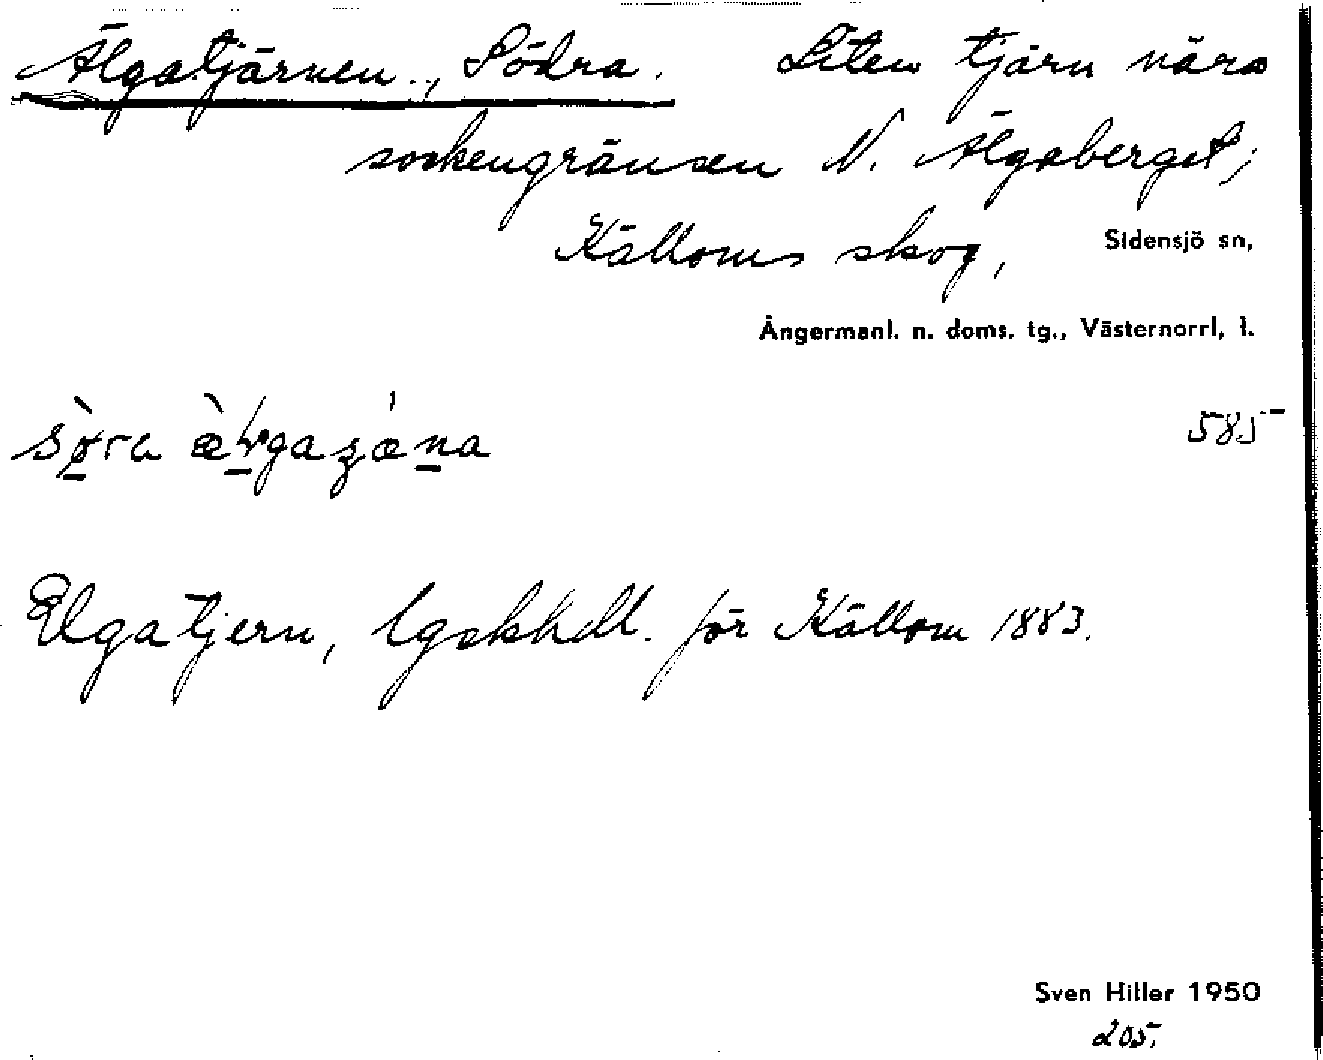 Älgatjärnen, Södra. Liten tjärn nära
sockengränsen N. Älgaberget;
Källoms skog,
Sidensjö sn,
Ångermanl. n. doms. tg., Västernorrl. l.
585
Elgatjern, lgskhdl. för Källom 1883.
Sven Hiller 1950
205.